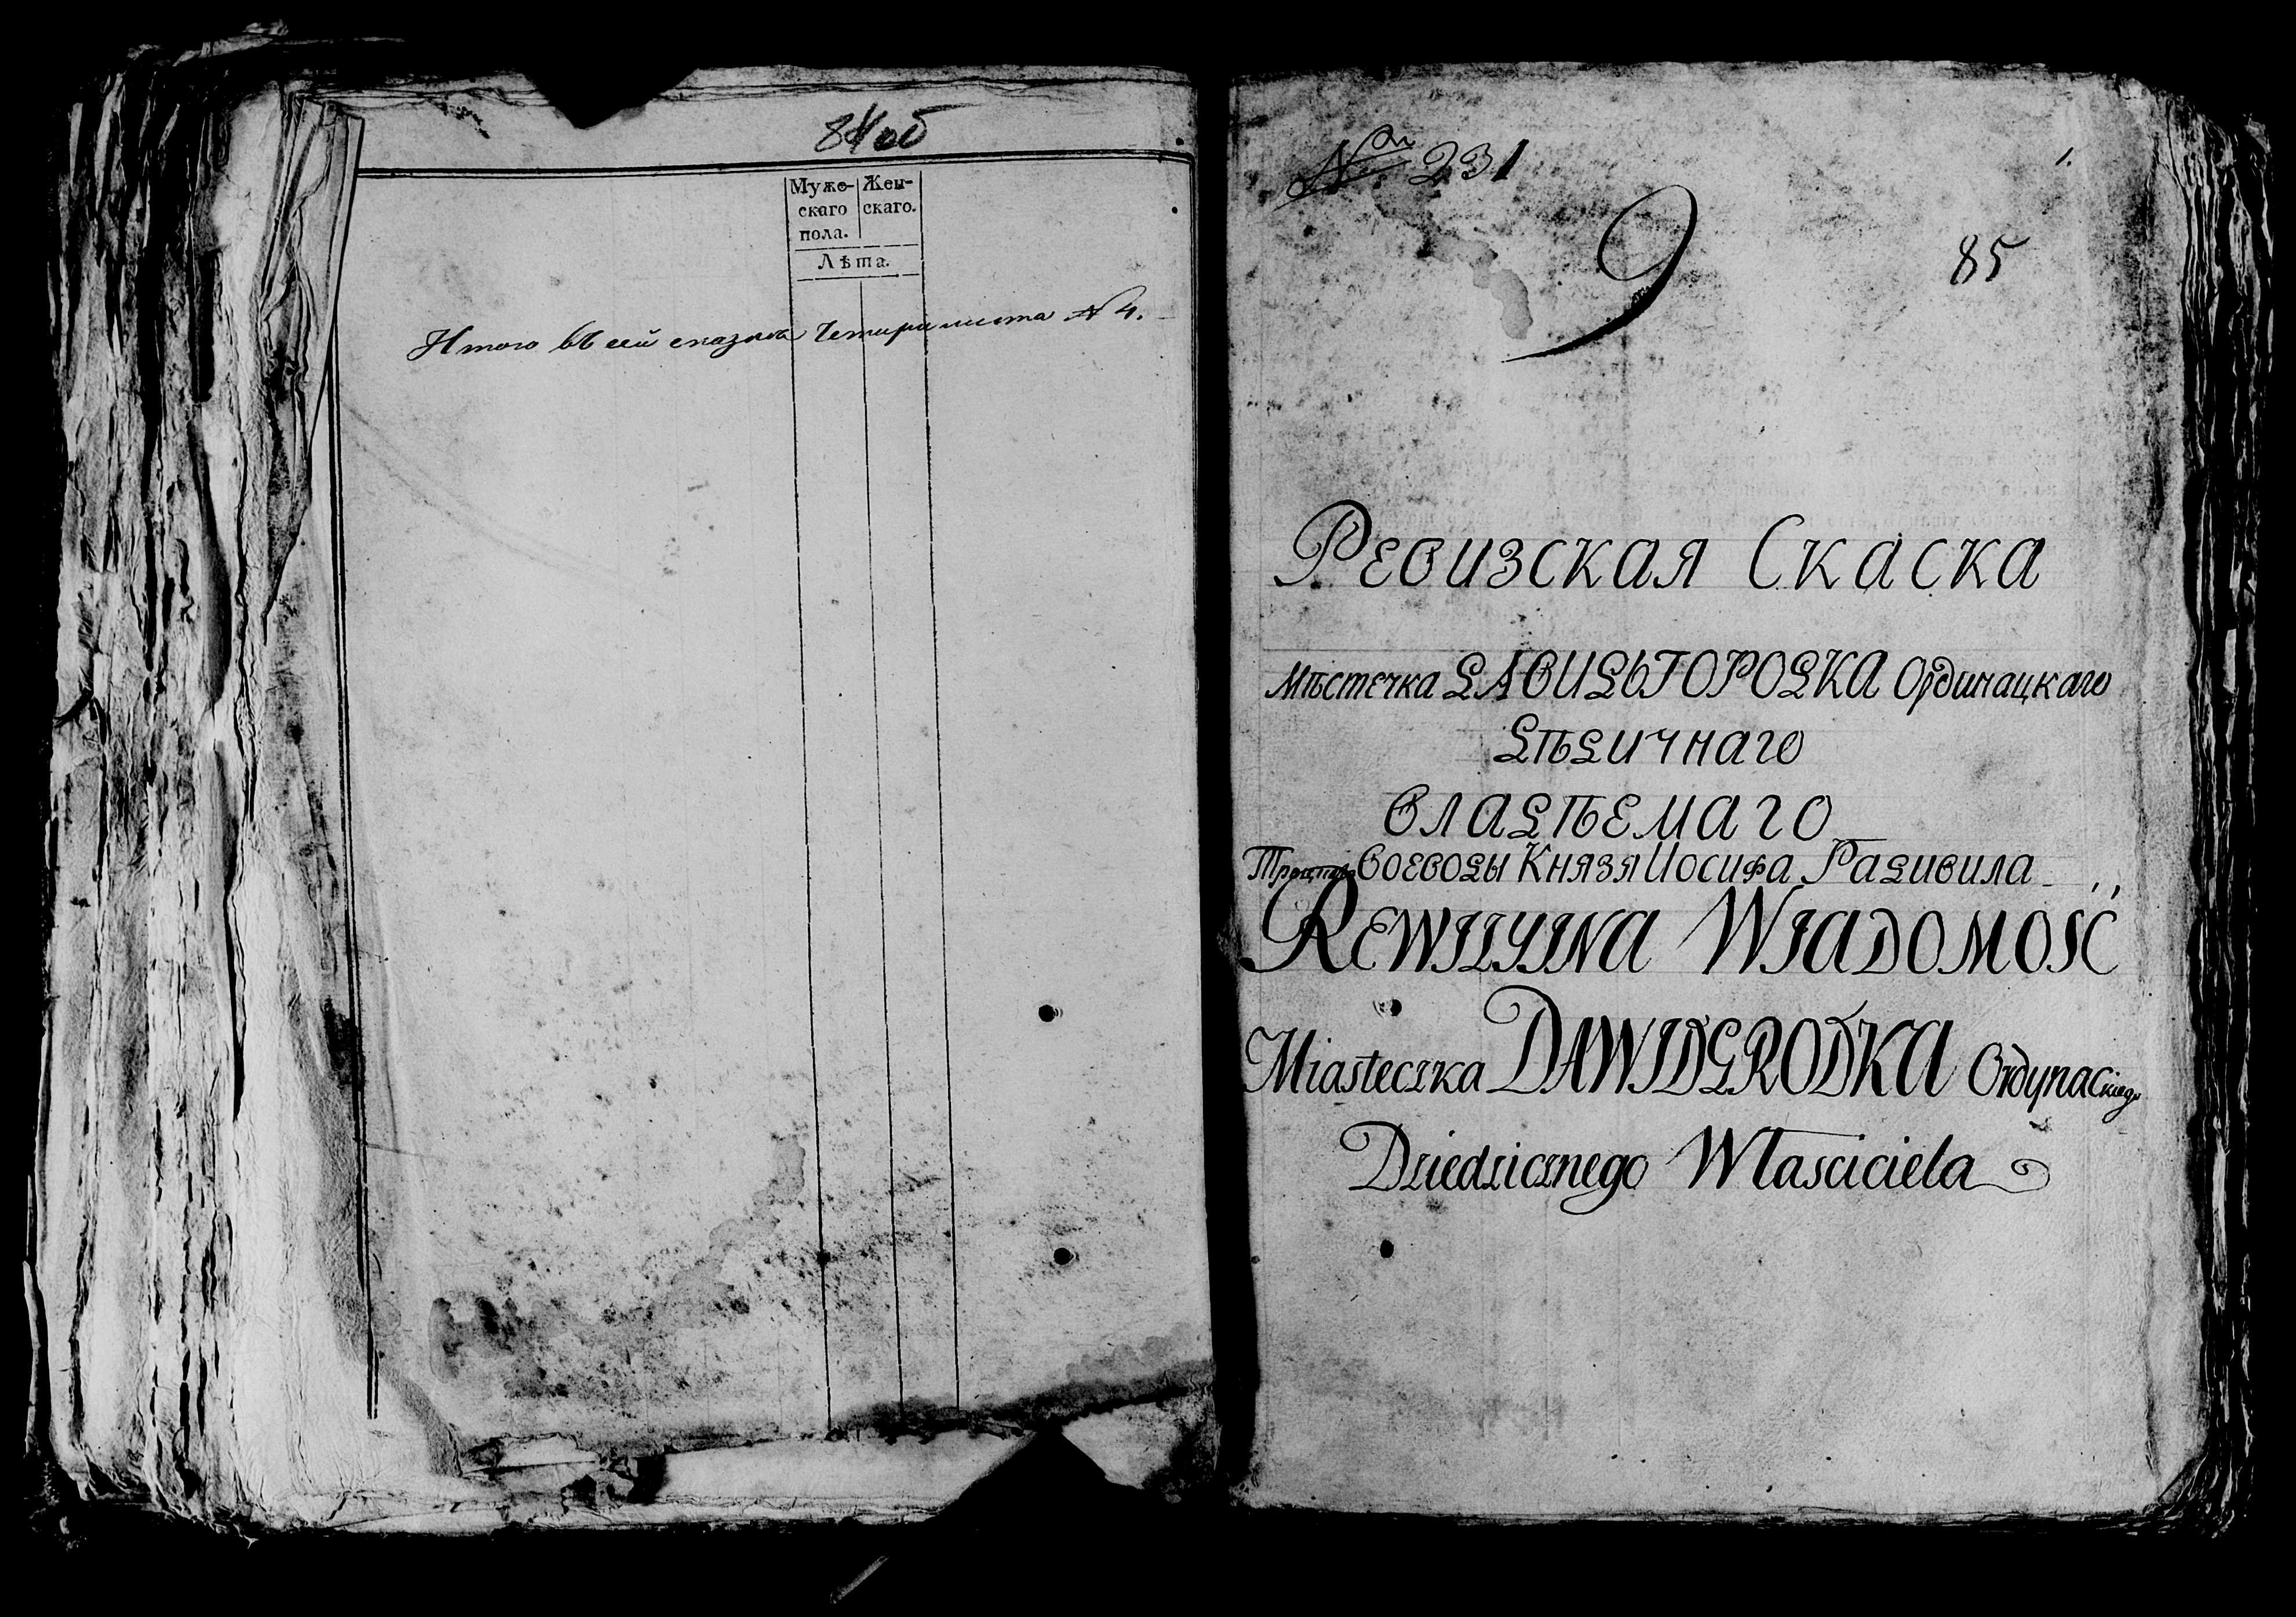 84об
Муже- Жен-
скаго скаго.
пола.
Лѣта.
Итого въ сей сказкѣ Четыри листа № 4.
№ 231
1.
9
85
Ревизская Скаска
Мѣстечка ДАВИДЬГОРОДКА Ординацкаго
Дѣдичнаго
Владѣемаго
Воеводы Князя Иосифа Радивила
REWIZYINA WIADOMOŚĆ
Miasteczka DAWIDGRODKA Ordynackiego
Dziedzicznego Własciciela